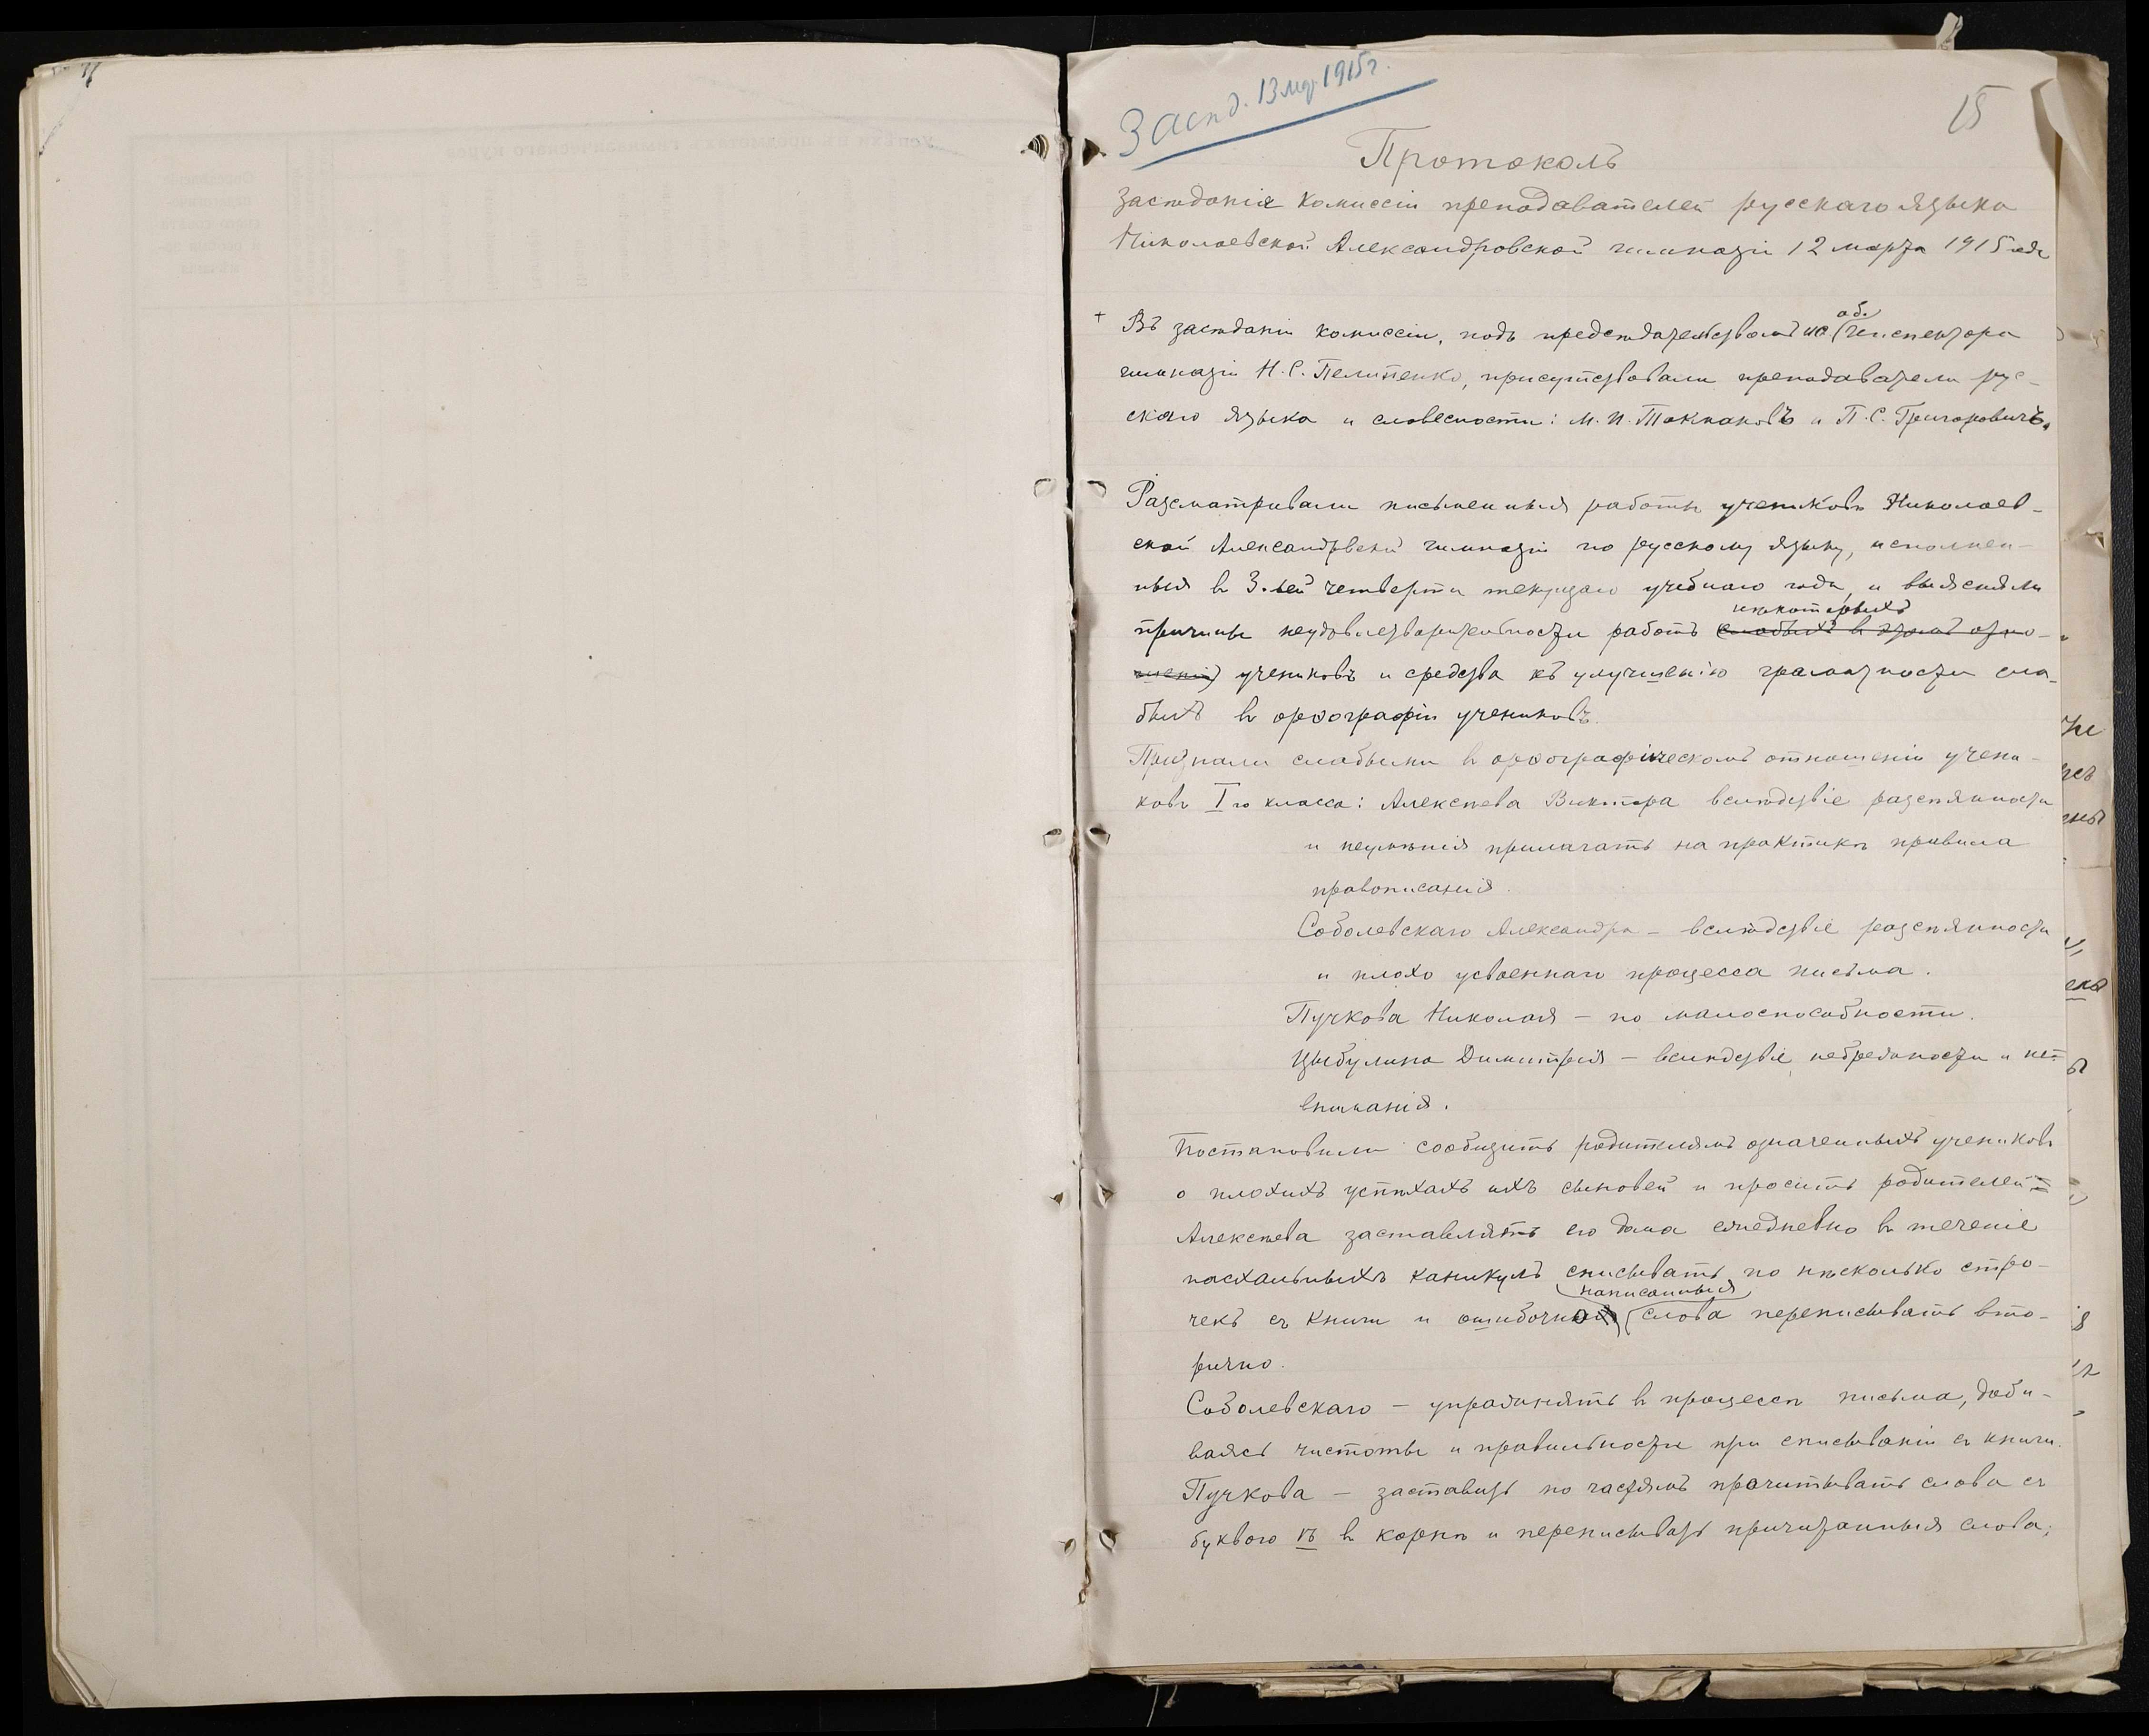 Засѣд. 13 мар. 1915 г.
15
Протоколъ
засѣданія комиссіи преподавателей русскаго языка
Николаевской Александровской гимназіи 12 марта 1915 года
Въ засѣданіи комиссіи, подъ предсѣдательствомъ об. инспектора
гимназіи Н. С. Пелипенко, присутствовали преподаватели рус-
скаго языка и словесности: М. И. Токмаковъ и П. С. Григоровичъ.
Разсматривали письменныя работы учениковъ Николаев-
ской Александровской гимназіи по русскому языку, исполнен-
ныя въ 3-ей четверти текущаго учебнаго года, и выясняли
причины неудовлетворительности работъ нѣкоторыхъ слабыхъ въ этомъ отно-
шеніи учениковъ и средства къ улучшенію грамотности сла-
быхъ въ орѳографіи учениковъ.
Признали слабыми въ орѳографическомъ отношеніи учени-
ковъ I го класса: Алексѣева Виктора вслѣдствіе разсѣянности
и неумѣнія прилагать на практикѣ правила
правописанія.
Соболевскаго Александра – вслѣдствіе разсѣянности
и плохо усвоеннаго процесса письма.
Пучкова Николая – по малоспособности.
Цыбулина Димитрія – вслѣдствіе небрежности и не-
вниманія.
Постановили сообщить родителямъ означенныхъ учениковъ
о плохихъ успѣхахъ ихъ сыновей и просить родителей
Алексѣева заставлять его дома ежедневно въ теченіе
пасхальныхъ каникулъ списывать по нѣсколько стро-
чекъ съ книги и ошибочно написанныя слова переписывать вто-
рично.
Соболевскаго – упражнять въ процессѣ письма, доби-
ваясь чистоты и правильности при списываніи съ книги.
Пучкова – заставить по частямъ прочитывать слова съ
буквою ѣ въ корнѣ и переписывать прочитанныя слова;